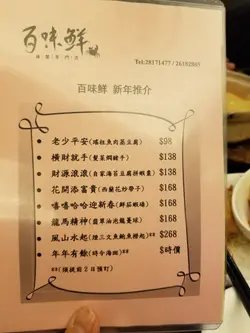 百味鮮
Tel:28171477 / 26182865
百味鮮 新年推介
老少平安(瑤柱魚肉蒸豆腐) $98
橫財就手(髮菜燜豬手) $138
財源滾滾(自家海苔豆腐拼蝦棗) $138
花開添富貴(西蘭花炒帶子) $168
嘻嘻哈哈迎新春(鮮茄蝦球) $168
龍馬精神(翡翠油泡龍躉球) $168
風山水起(煙三文魚鮑魚撈起)** $268
年年有餘(時令海鮮)** $時價
**(須提前2日預訂)